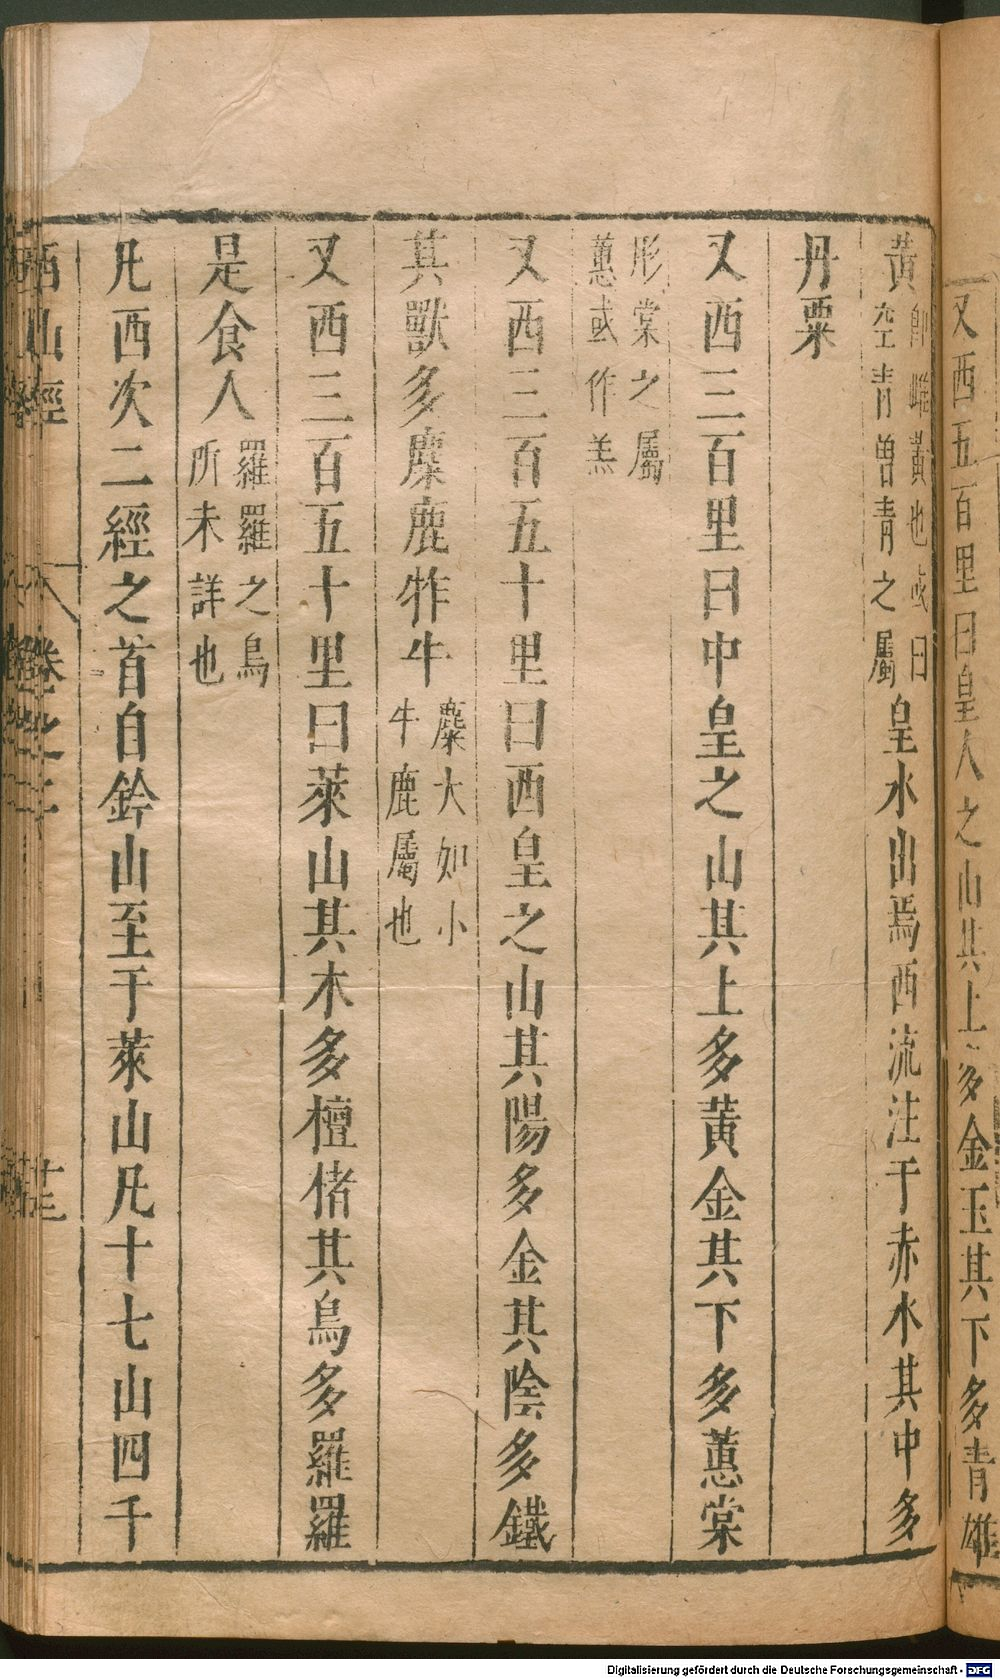 又西五百里曰皇人之山其上多金玉其下多青雄
黃卽雌黃也或曰空青曾青之屬皇水出焉西流注于赤水其中多
丹粟
又西三百里曰中皇之山其上多黃金其下多蕙棠
彤棠之屬蕙或作羔
又西三百五十里曰西皇之山其陽多金其陰多鐵
其獸多麋鹿㸲牛麋大如小牛鹿屬也
又西三百五十里曰萊山其木多檀楮其鳥多羅羅
是食人羅羅之鳥所未詳也
凡西次二經之首自鈐山至于萊山凡十七山四千
西山經 卷之二
Digitalisierung gefördert durch die Deutsche Forschungsgemeinschaft - DFG